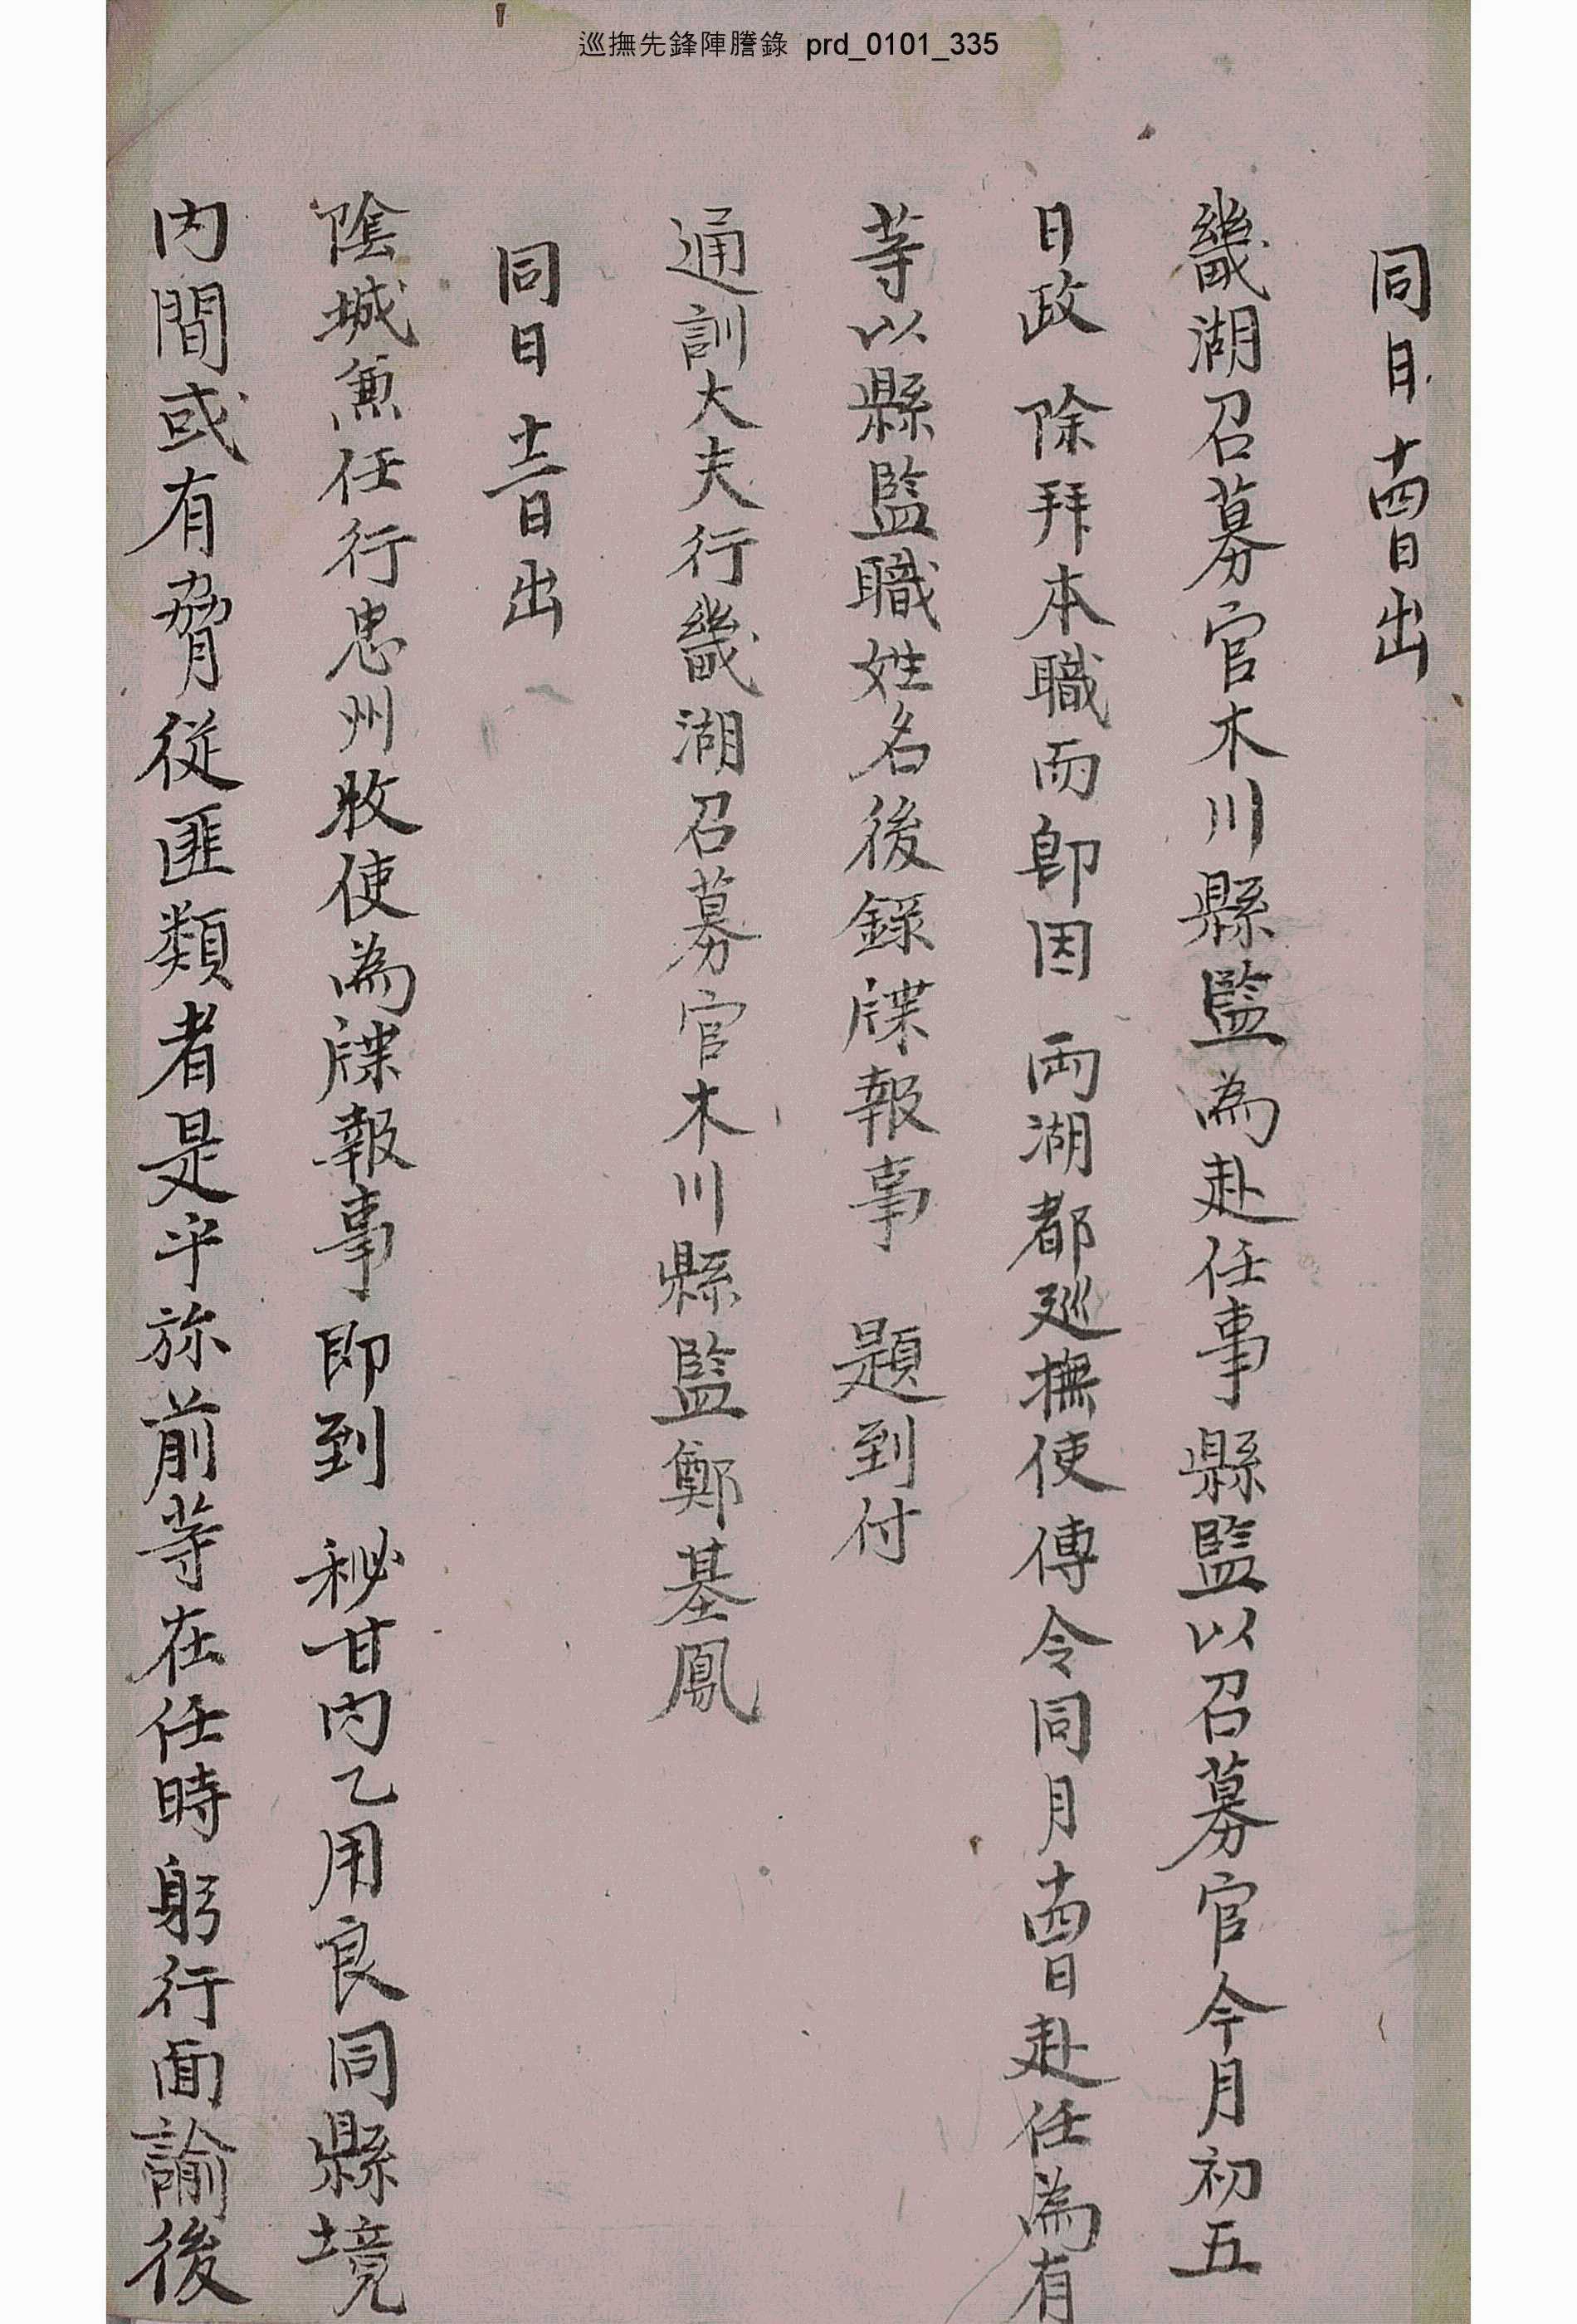 巡撫先鋒陣謄錄 prd_0101_335
同月十四日出
畿湖召募官木川縣監為赴任事縣監以召募官今月初五
日政 除拜本職而卽因 兩湖都廵撫使傳令同月十四日赴任為有
等以縣監職姓名後錄牒報事 題到付
通訓大夫行畿湖召募官木川縣監鄭基鳳
同日 十二日出
陰城兼任行忠州牧使為牒報事即到 秘甘內乙用良同縣境
內間或有脅從匪類者是乎旀前等在任時躬行面諭後